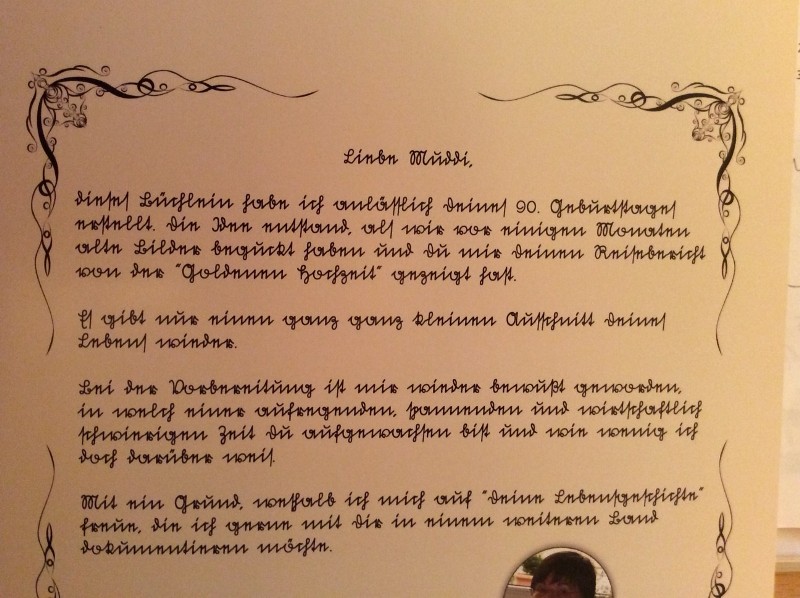 Liebe Muddi,
dieses Büchlein habe ich anlässlich deines 90. Geburtstages
erstellt. Die Idee entstand, als wir vor einigen Monaten
alte Bilder beguckt haben und du mir deinen Reisebericht
von der "Goldenen Hochzeit" gezeigt hast.
Es gibt nur einen ganz ganz kleinen Ausschnitt deines
Lebens wieder.
Bei der Vorbereitung ist mir wieder bewußt geworden,
in welch einer aufregenden, spannenden und wirtschaftlich
schwierigen Zeit du aufgewachsen bist und wie wenig ich
doch darüber weis.
Mit ein Grund, weshalb ich mich auf "deine Lebensgeschichte"
freue, die ich gerne mit dir in einem weiteren Band
dokumentieren möchte.